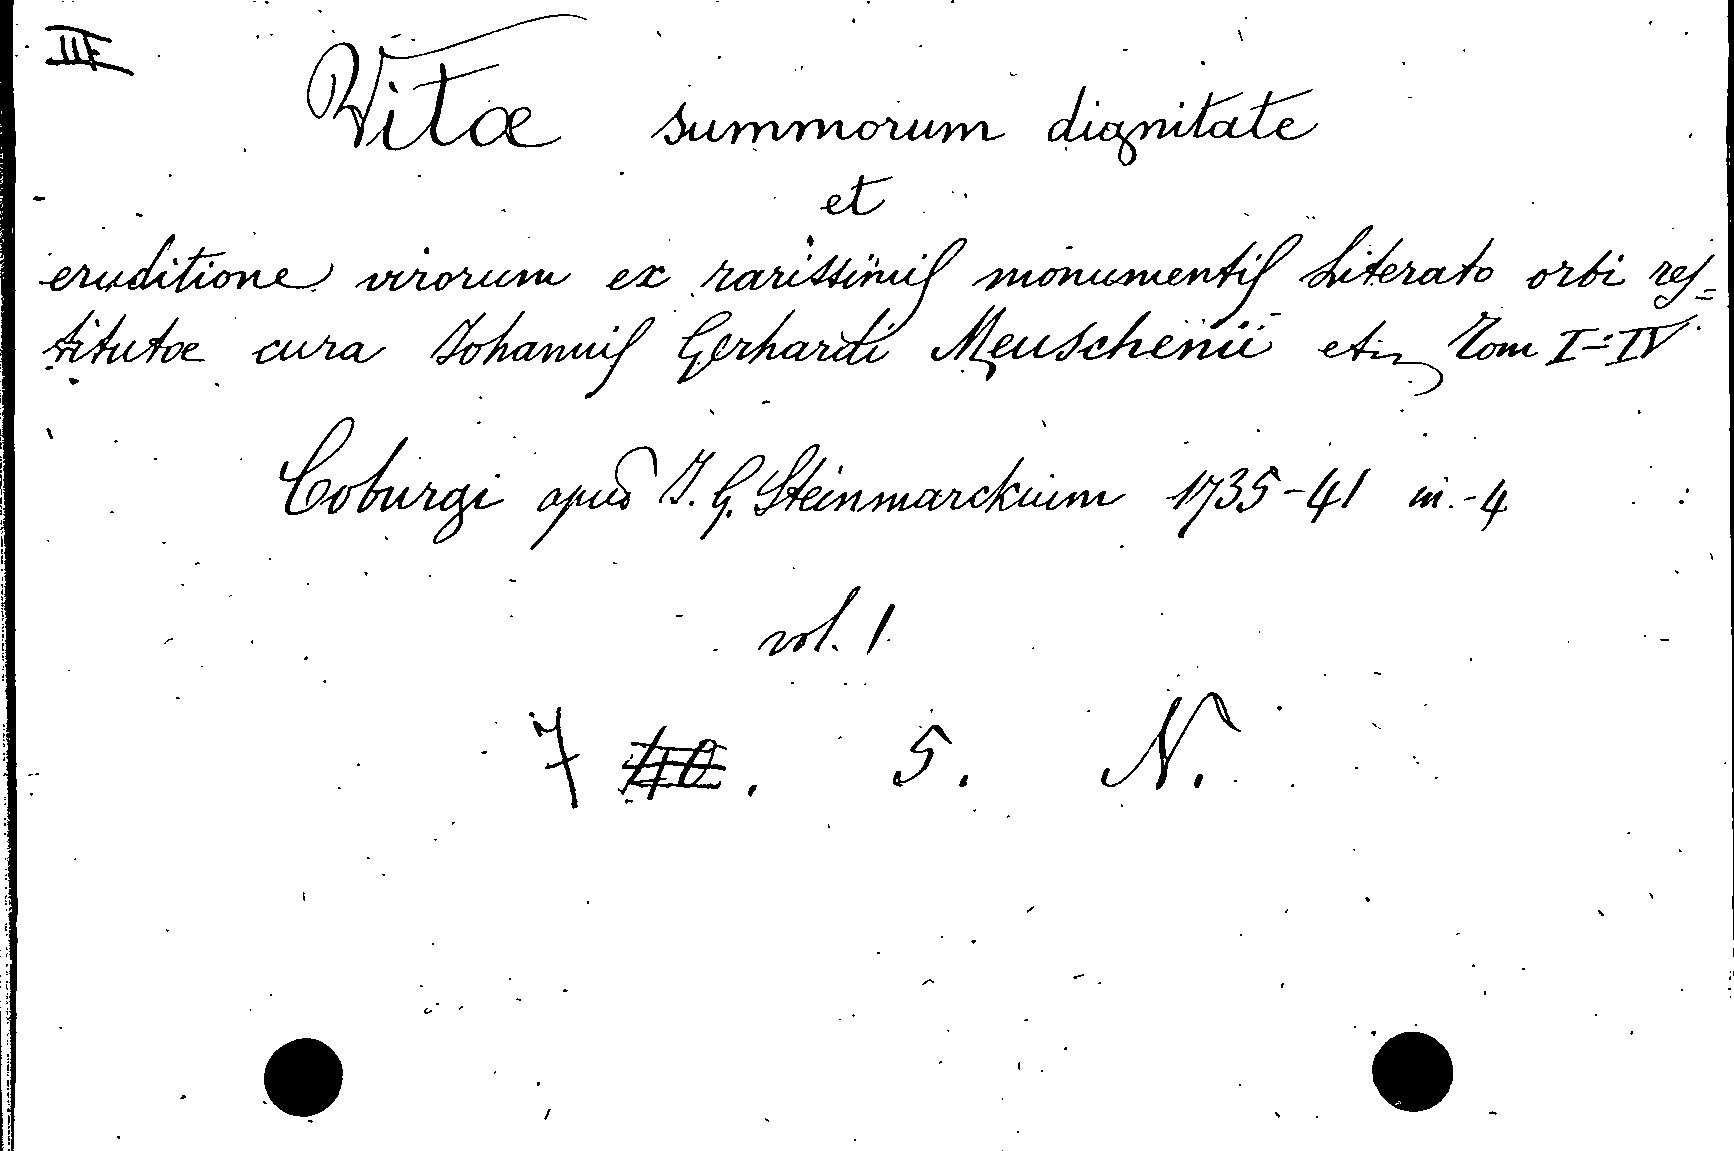 III
Vitæ summorum dignitate
et
eruditione virorum ex rarissimis monumentis Literato orbi res=
titutæ cura Johannis Gerhardi Meuschenii etc Tom I=IV
Coburgi apud J. G. Steinmarckium 1735-41 in.-4
vol. 1
7 40. 5. N.